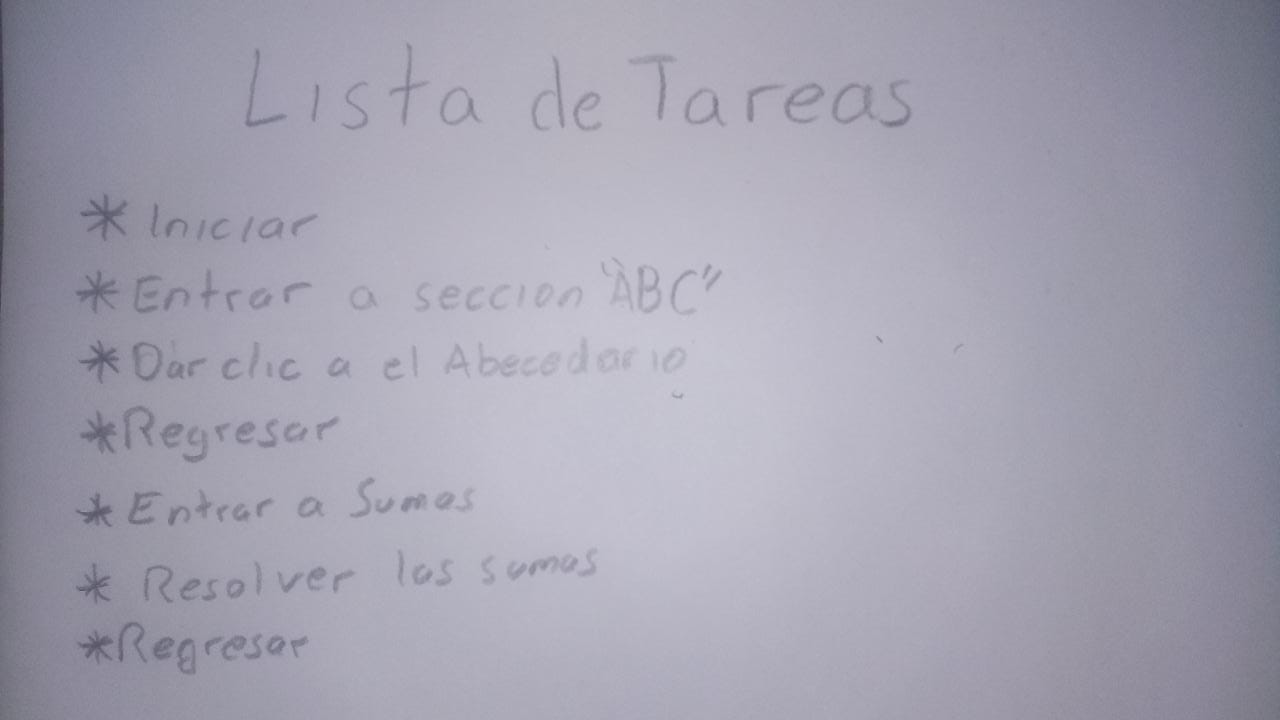 Lista de Tareas
* Iniciar
* Entrar a seccion "ABC"
* Dar clic a el Abecedario
* Regresar
* Entrar a Sumas
* Resolver las sumas
* Regresar